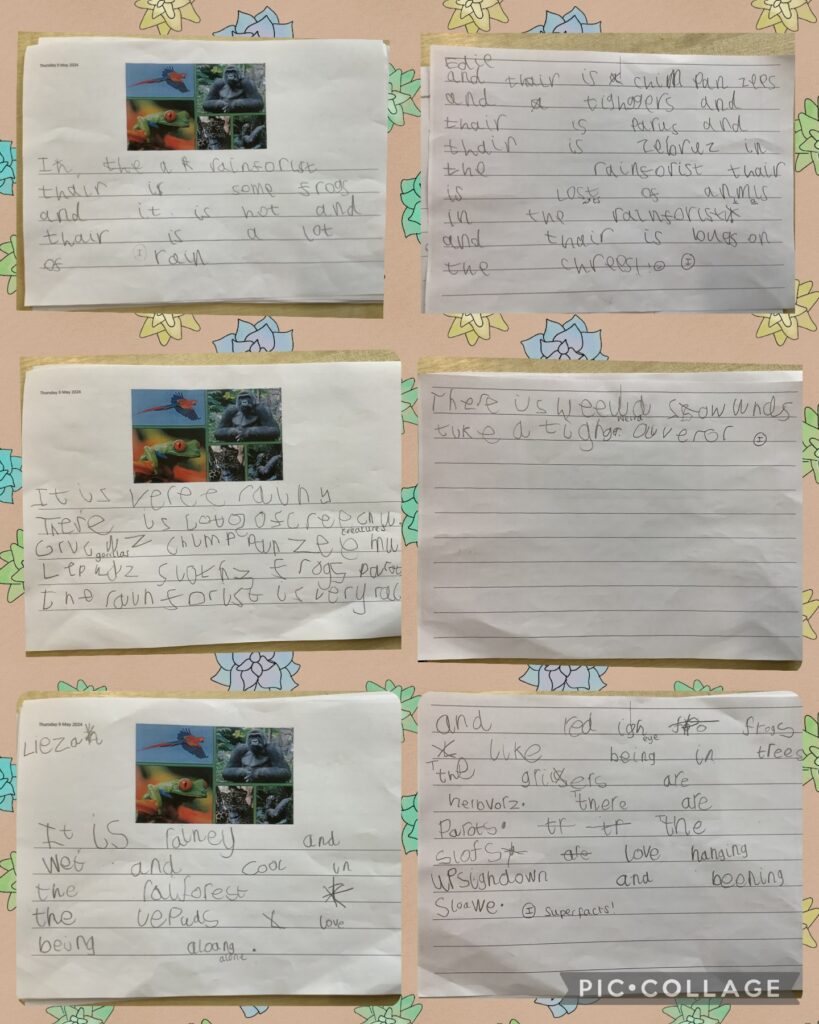 Thursday 9 May 2024
In, the rainforist
thair is some frogs
and it is hot and
thair is a lot
of rain
Edie
and thair is chim pan zees
and tighggers and
thair is parus and
thair is zebrez in
the rainforist thair
is lost of
in the rainforist
and thair is bugs on
the
Thursday 9 May 2024
It is veree
There is of
creatures
gorillas
slothz frogs parot
the rainforist is very
There is weeud
weird
a
Thursday 9 May 2024
It is rainey and
wet and cool in
the raiforest
the lepuds love
being aloang.
alone
and red igh frogs
eye
like being in trees
The are
herovorz. there are
Parots. the
slofs love hanging
upsighdown and beening
Sloawe. superfacts!
PIC•COLLAGE